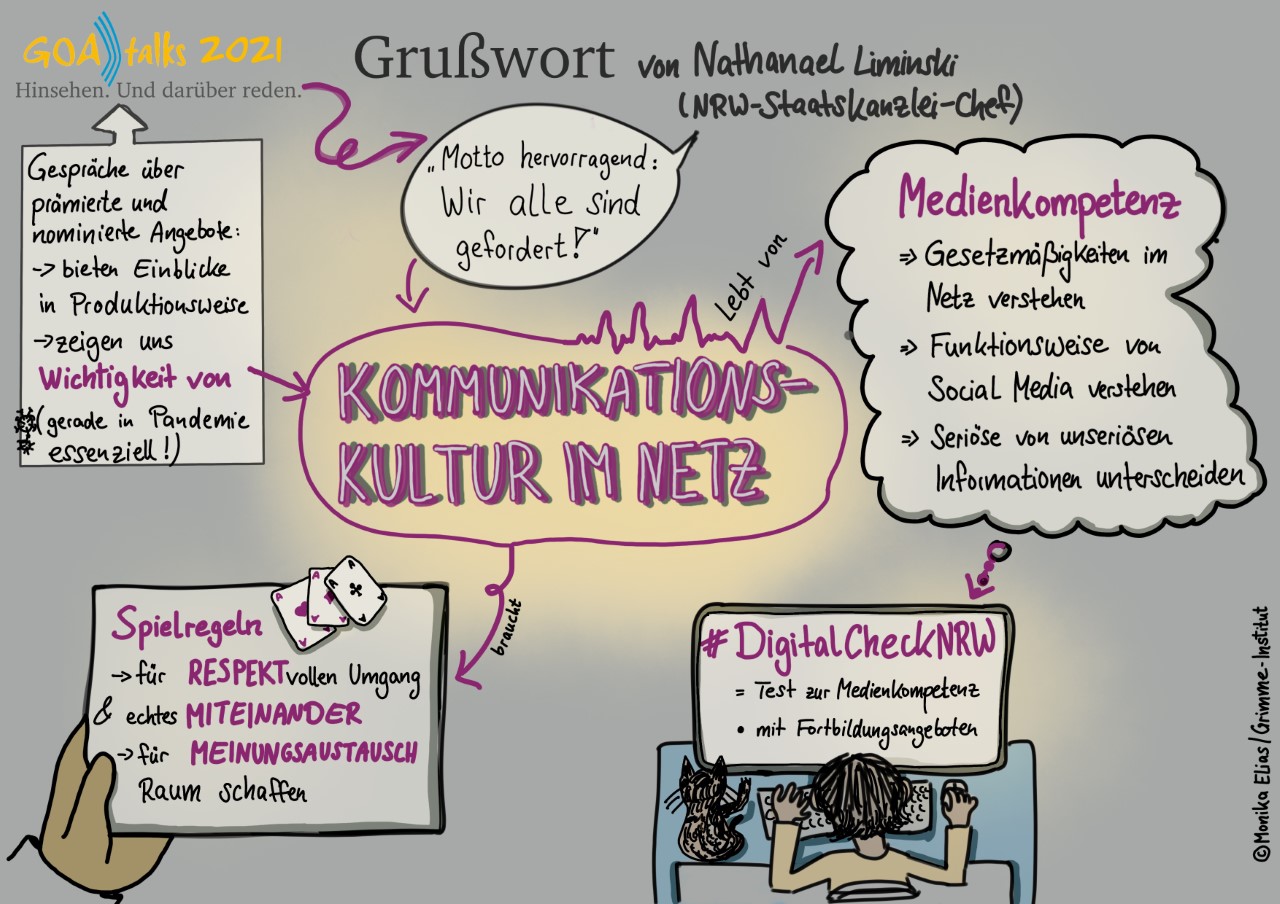 GOA talks 2021
Hinsehen. Und darüber reden.
Grußwort von Nathanael Liminski
(NRW-Staatskanzlei-Chef)
Gespräche über
prämierte und
nominierte Angebote:
-> bieten Einblicke
in Produktionsweise
-> zeigen uns
Wichtigkeit von
(gerade in Pandemie
essenziell!)
„Motto hervorragend:
Wir alle sind
gefordert!"
KOMMUNIKATIONS-
KULTUR IM NETZ
Lebt von
Medienkompetenz
=> Gesetzmäßigkeiten im
Netz verstehen
=> Funktionsweise von
Social Media verstehen
=> Seriöse von unseriösen
Informationen unterscheiden
braucht
Spielregeln
A
A
A
-> für RESPEKTvollen Umgang
& echtes MITEINANDER
-> für MEINUNGSAUSTAUSCH
Raum schaffen
#DigitalCheckNRW
= Test zur Medienkompetenz
• mit Fortbildungsangeboten
©Monika Elias/Grimme-Institut